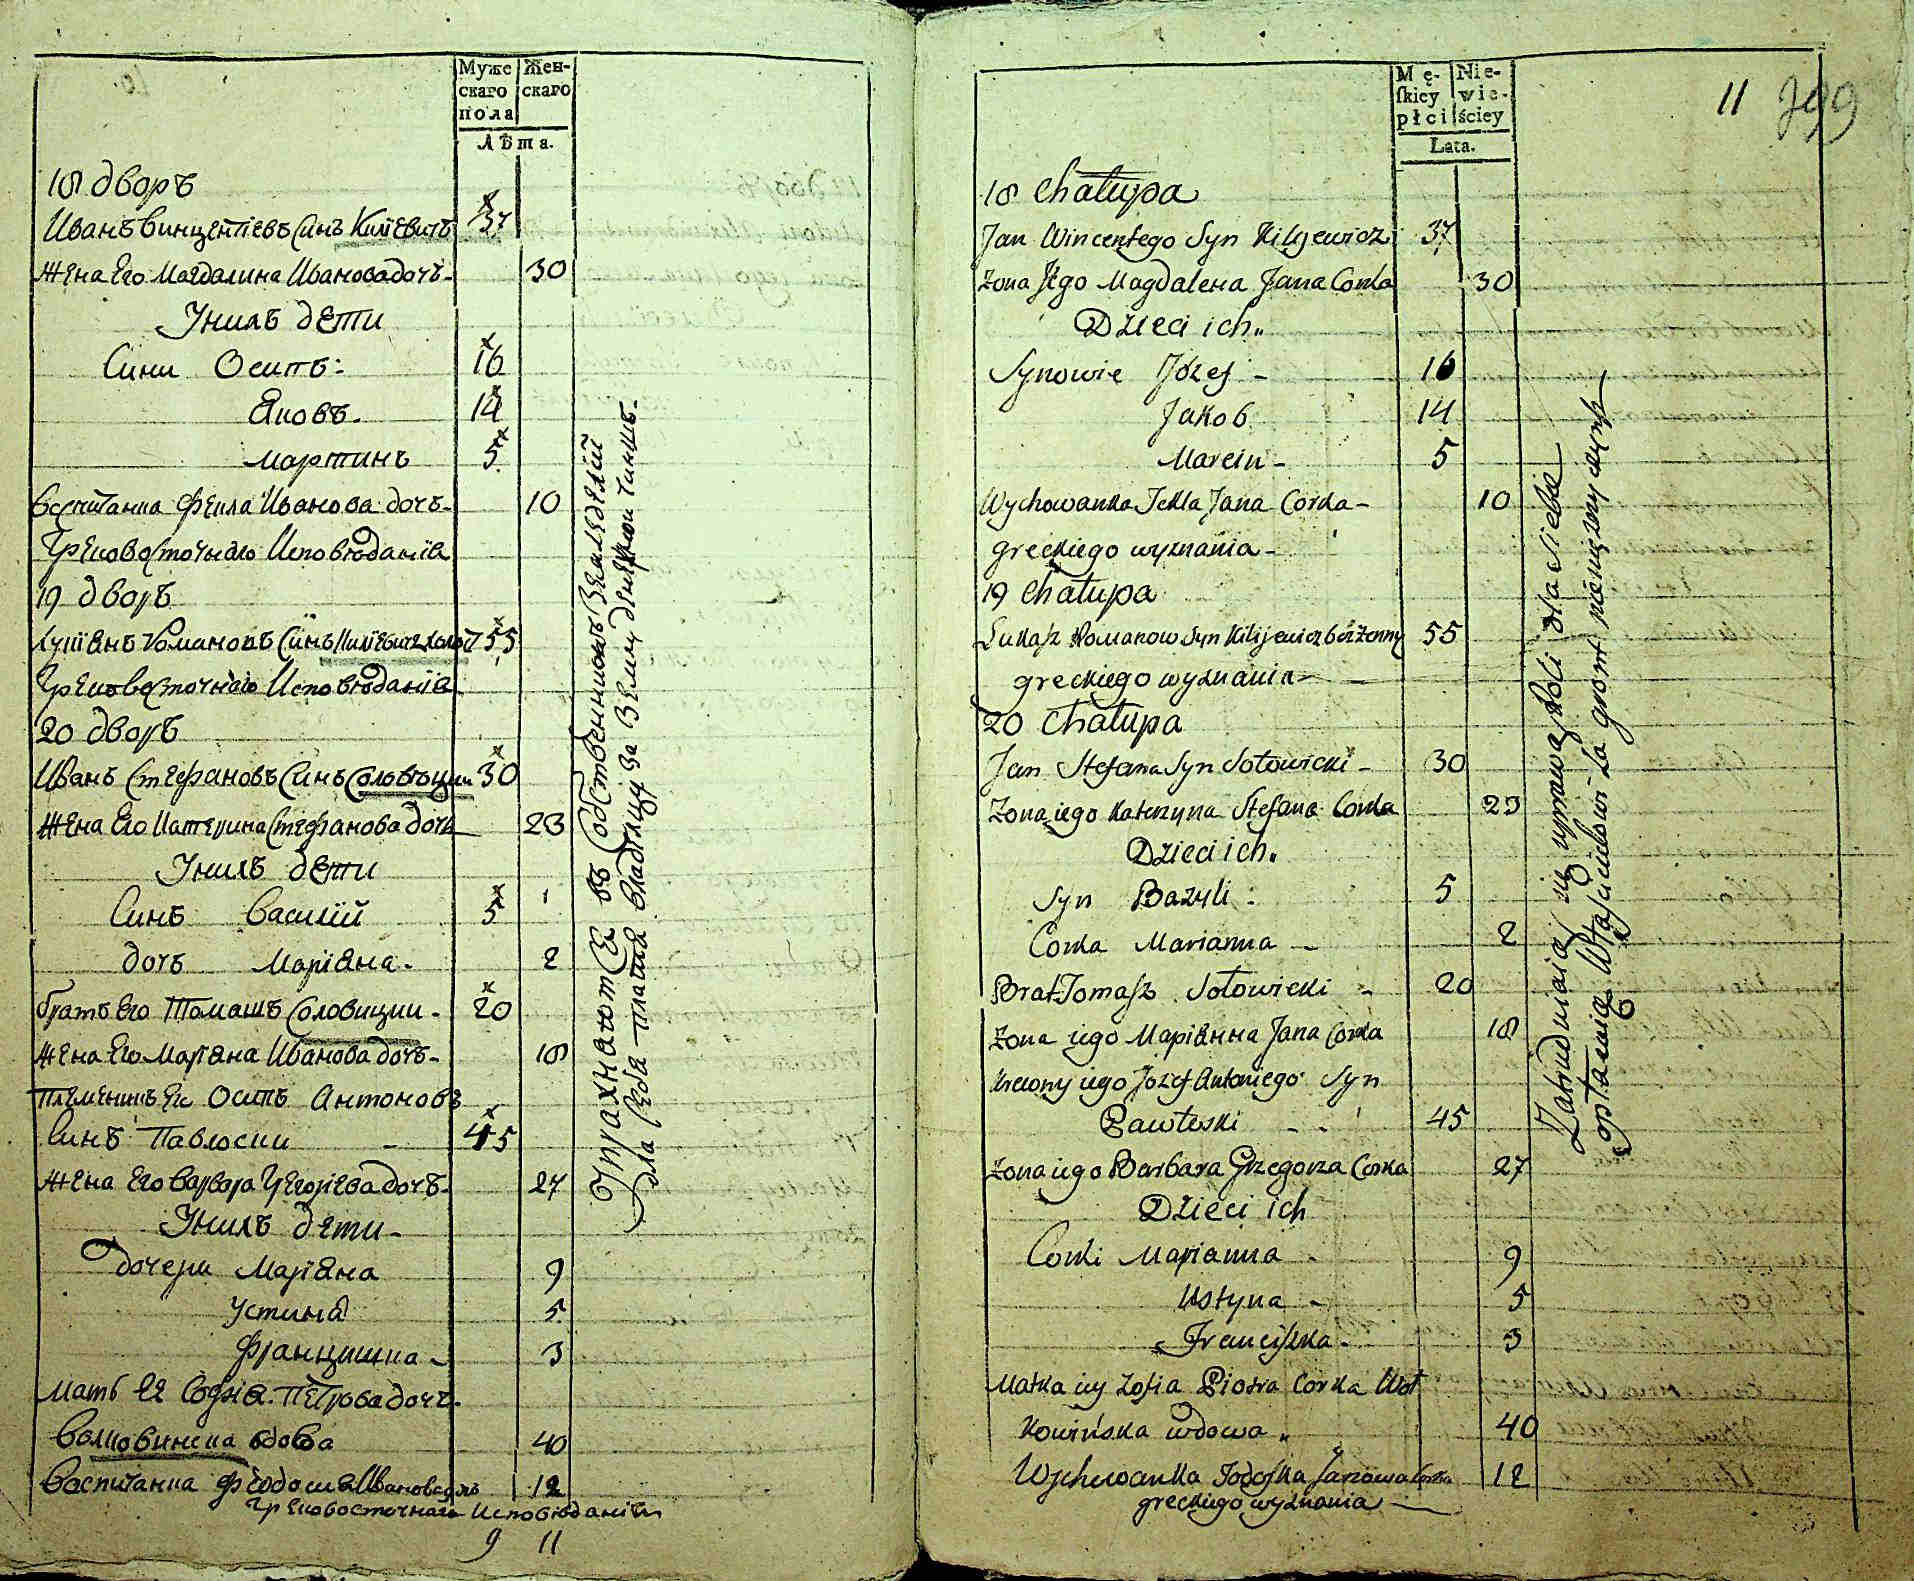 Муже
скаго
пола
Жен-
скаго
Лѣта.
18 дворъ
Иванъ Винцентіевъ Синъ Килїевичъ 37
Жена Его Магдалина Ивановадочъ- 30
Унихъ дети
Сини Осипъ: 16
Яковъ. 14
Мартинъ 5
Воспитанка Фекла Иванова дочъ- 10
Грековосточнаго Исповѣданїя
19 дворъ
Лукїянъ Романовъ Синъ 55
Грековосточнаго Исповѣданїя
20 дворъ
Иванъ Стефановъ Синъ Соловѣцки 30
Жена Его Катерина Стефанова дочъ 23
Унихъ дети
Синъ Василїй 5
дочъ Марїяна. 2
братъ Его Томашъ Соловицки- 20
Жена Его Марїяна Иванова дочъ- 18
Племеникъ Ег Осипъ Антоновъ
Синъ Павлоски - 45
Жена Его Варвара Григорїева дочъ- 27
Унихъ дети-
дочери Марїяна 9
Устина 5
Францишка- 3
Мать Ея Софїя Петрова дочъ.
Волковинска вдова 40
Воспитанка Феодосия Иванова 12
Грековосточнаго Исповѣданїя
9 11
Упражнаются въ Собственномъ Земледелїй
для себя платя Владелцу за Землю денежной чиншъ-
11 799
Mę-
ſkiey
płci
Nie-
wie-
ściey
Lata.
18 Chałupa
Jan Wincentego Syn Kilijewicz 37
Zona Jego Magdalena Jana Corka 30
Dzieci ich..
Synowie Józef - 16
Jakob 14
Marcin- 5
Wychowanka Tekla Jana Corka- 10
greckiego wyznania-
19 Chałupa
Łukasz Romanow Syn Kilijewicz bezżenny 55
greckiego wyznania-
20 Chałupa
Jan Stefana Syn Sołowicki- 30
Zona iego Katerzyna Stefana Corka 23
Dzieci ich.
Syn Bazyli. 5
Corka Marianna - 2
Brat Tomasz Sołowicki - 20
Zona iego Маріанна Jana Corka 18
Krewny iego Jozef Antoniego Syn
Pawłoski - - 45
Zona iego Barbara Grzegorza Corka 27
Dzieci ich
Corki Marianna - 9
Ustyna - 5
Franciszka- 3
Matka iey Zofia Piotra Corka Woł
kowińska wdowa 40
Wychowanka Corka 12
greckiego wyznania
Zatrudniaią się uprawą Roli dla siebie
opłacaiąc Właścicielowi za gront